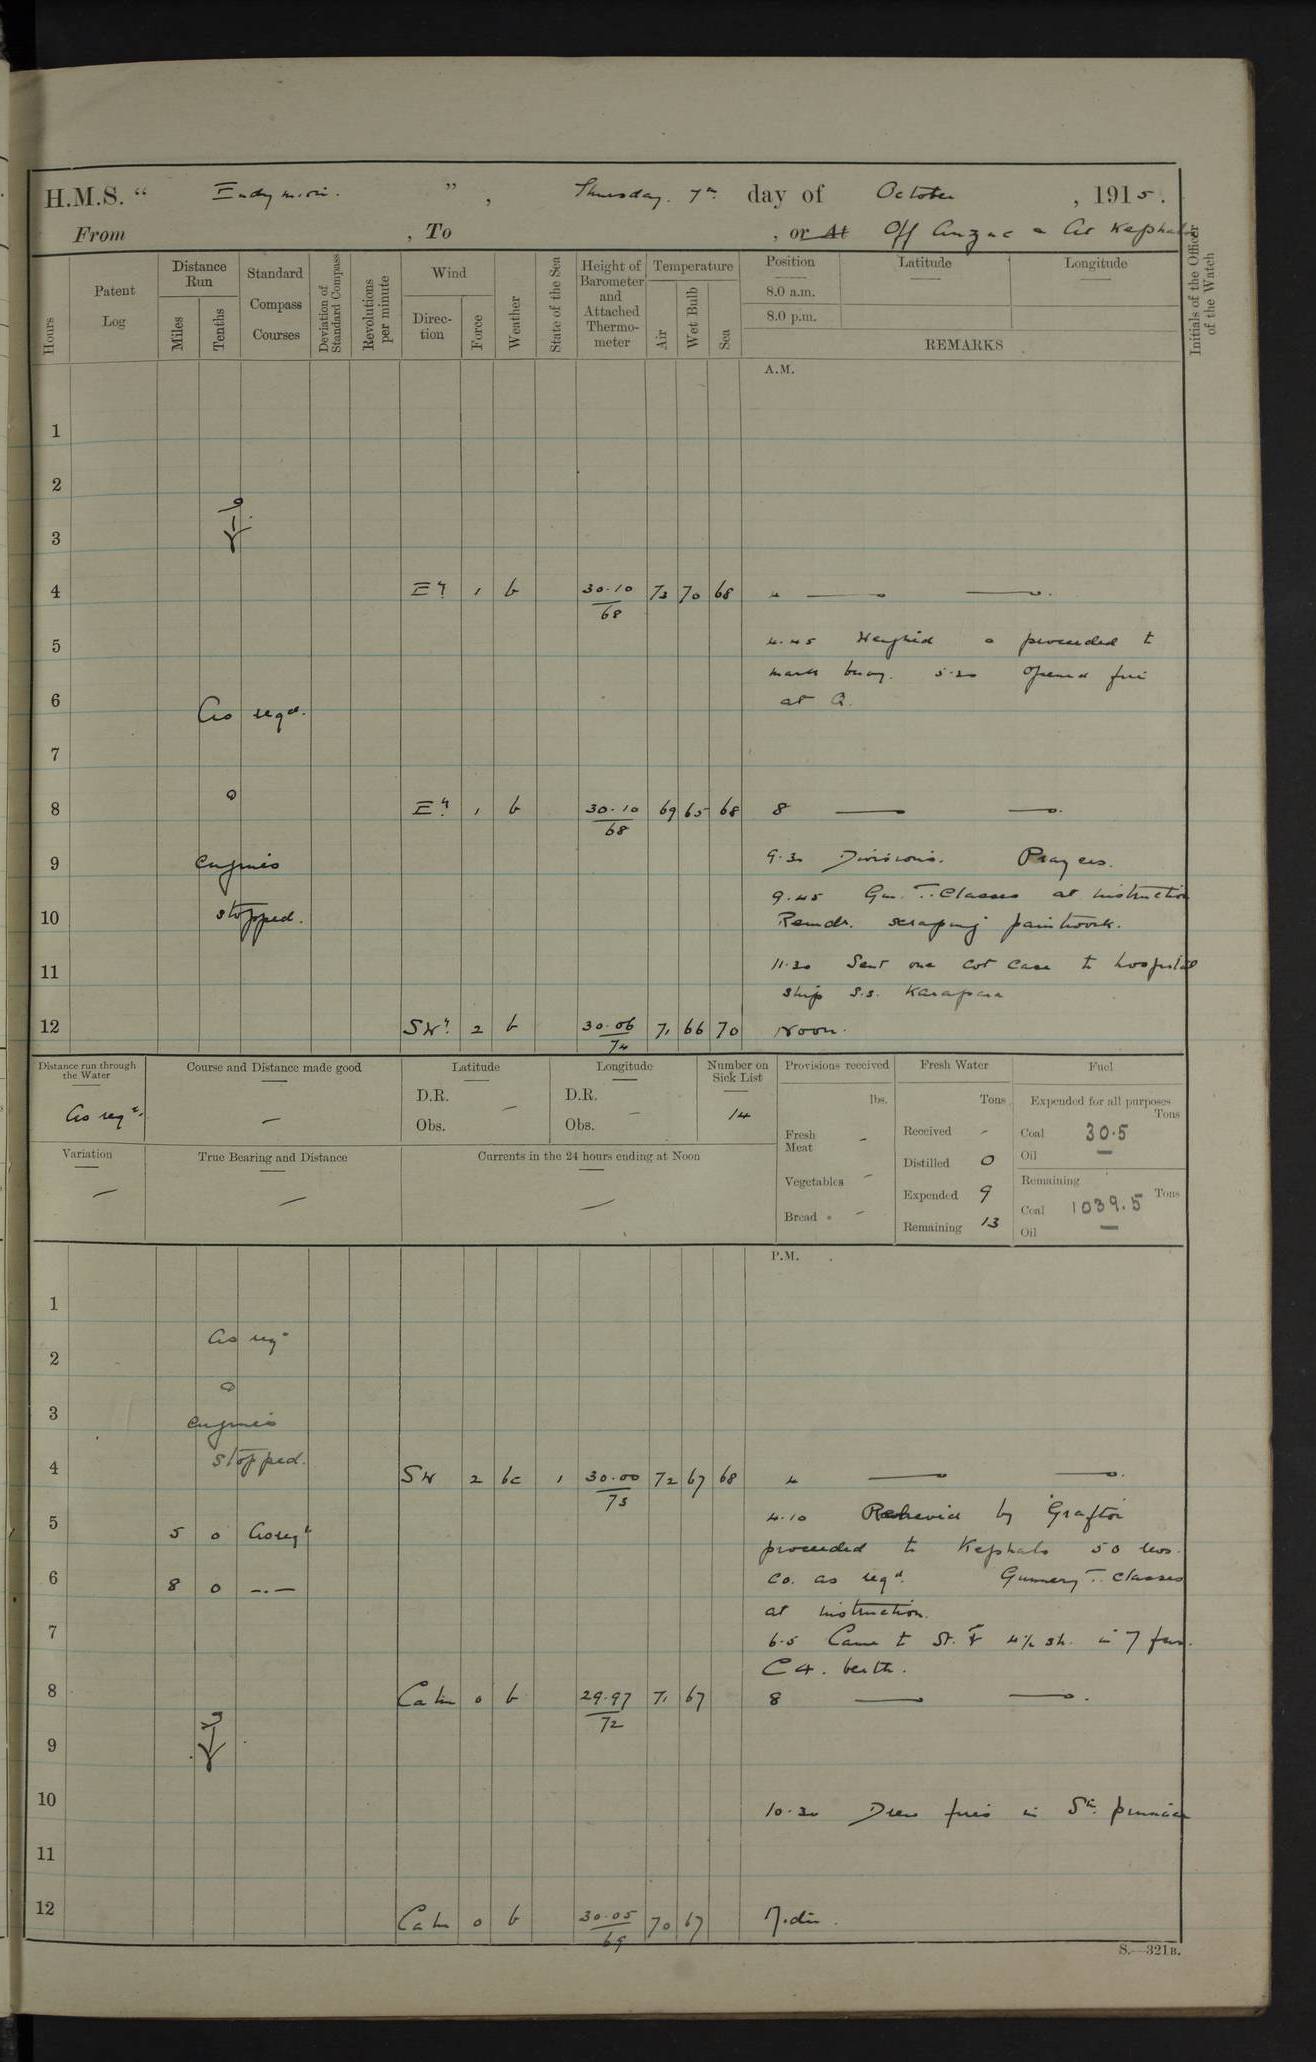 H.M.S. “ Endymion. ” , Thursday. 7th day of October , 1915.
From , To , or At Off Anzac & At Kephalo
Hours
Patent Log
Distance Run
Miles
Tenths
Standard Compass Courses
Deviation of Standard Compass
Revolutions per minute
Wind
Direction
Force
Weather
State of the Sea
Height of Barometer and Attached Thermometer
Temperature
Air
Wet Bulb
Sea
Position
8.0 a.m.
8.0 p.m.
Latitude
Longitude
REMARKS
Initials of the Officer of the Watch
A.M.
1
2
3
4 Ely 1 b 30.10 73 70 68 4
68
5 4.45 Weighed & proceeded to
mark buoy. 5.20 Opened fire
6 at Q.
As reqd.
7
8 Ely 1 b 30.10 69 65 68 8
68
9 Engines 9.30 Divisions. Prayers.
9.45 Gun. T. Classes at instruction
10 stopped. Remdr. scraping paintwork.
11 11.30 Sent one cot case to hospital
ship S.S. Karapara
12 SWly 2 b 30.06 71 66 70 Noon.
74
Distance run through the Water
As reqd.
Course and Distance made good
—
Latitude
D.R.
Obs.
—
Longitude
D.R.
Obs.
—
Number on Sick List
14
Provisions received
lbs.
Fresh Meat -
Vegetables -
Bread -
Fresh Water
Tons
Received -
Distilled 0
Expended 9
Remaining 13
Fuel
Expended for all purposes
Tons
Coal 30.5
Oil —
Remaining
Tons
Coal 1039.5
Oil —
Variation
—
True Bearing and Distance
—
Currents in the 24 hours ending at Noon
—
P.M.
1
As reqd
2
3 Engines
stopped.
4 SW 2 bc 1 30.00 72 67 68 4
73
5 5 0 As reqd 4.10 Relieved by Grafton
proceeded to Kephalo 50 revs.
6 8 0 -.- Co. as reqd. Gunnery T. Classes
at instruction.
7 6.5 Came to St. 4½ sh. in 7 fms.
C4. berth.
8 Calm 0 b 29.97 71 67 8
72
9
10 10.30 Drew fires in Sm. pinnace
11
12 Calm 0 b 30.05 70 67 Midt.
69
S.—321B.